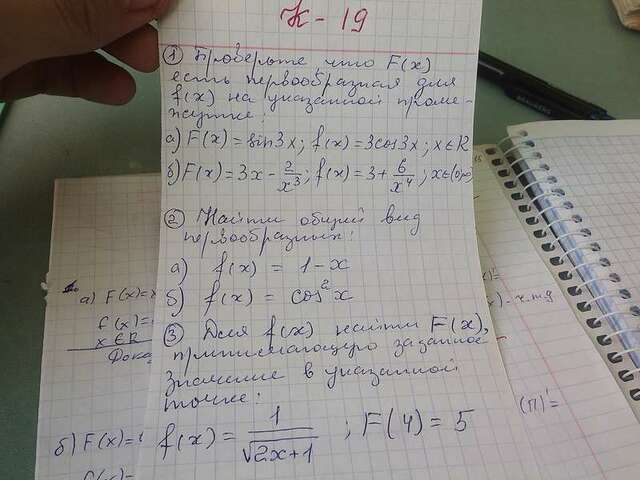 К - 19
① Проверьте, что F(x)
есть первообразная для
f(x) на указанной проме-
жутке:
а) F(x) = sin3x; f(x) = 3cos3x; x∈R
б) F(x) = 3x - 2/x³; f(x) = 3 + 6/x⁴; x∈(0;∞)
② Найти общий вид
первообразных:
а) f(x) = 1 - x
б) f(x) = cos²x
③ Для f(x) найти F(x),
принимающую заданное
значение в указанной
точке:
f(x) = 1/√(2x+1) ; F(4) = 5
а) F(x)=
f(x)=
x∈R
Дока
б) F(x)=
f(x)=
(П)'=